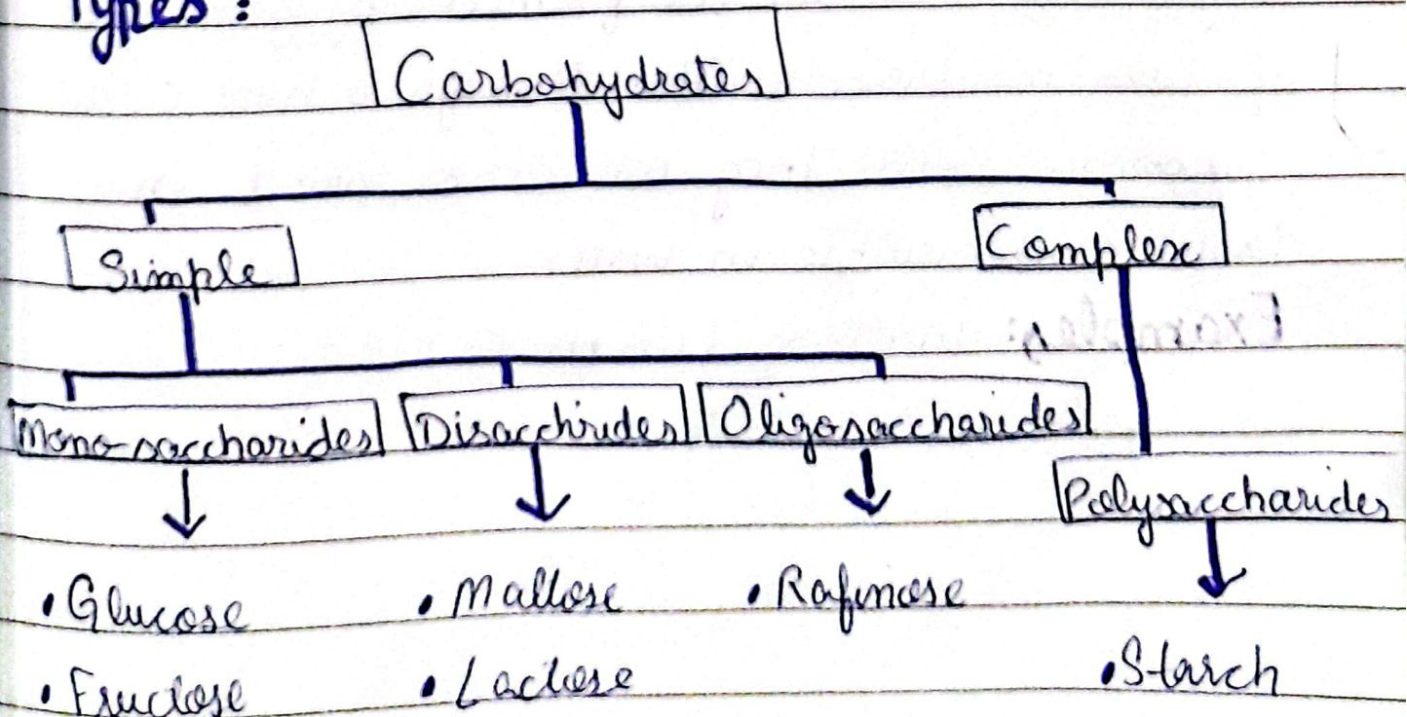 Types :
Carbohydrates
Simple
Complex
Mono-saccharides
Disacchrides
Oligosaccharides
Polysaccharides
• Glucose
• Maltose
• Rafinose
• Fructose
• Lactose
• Starch
Examples: